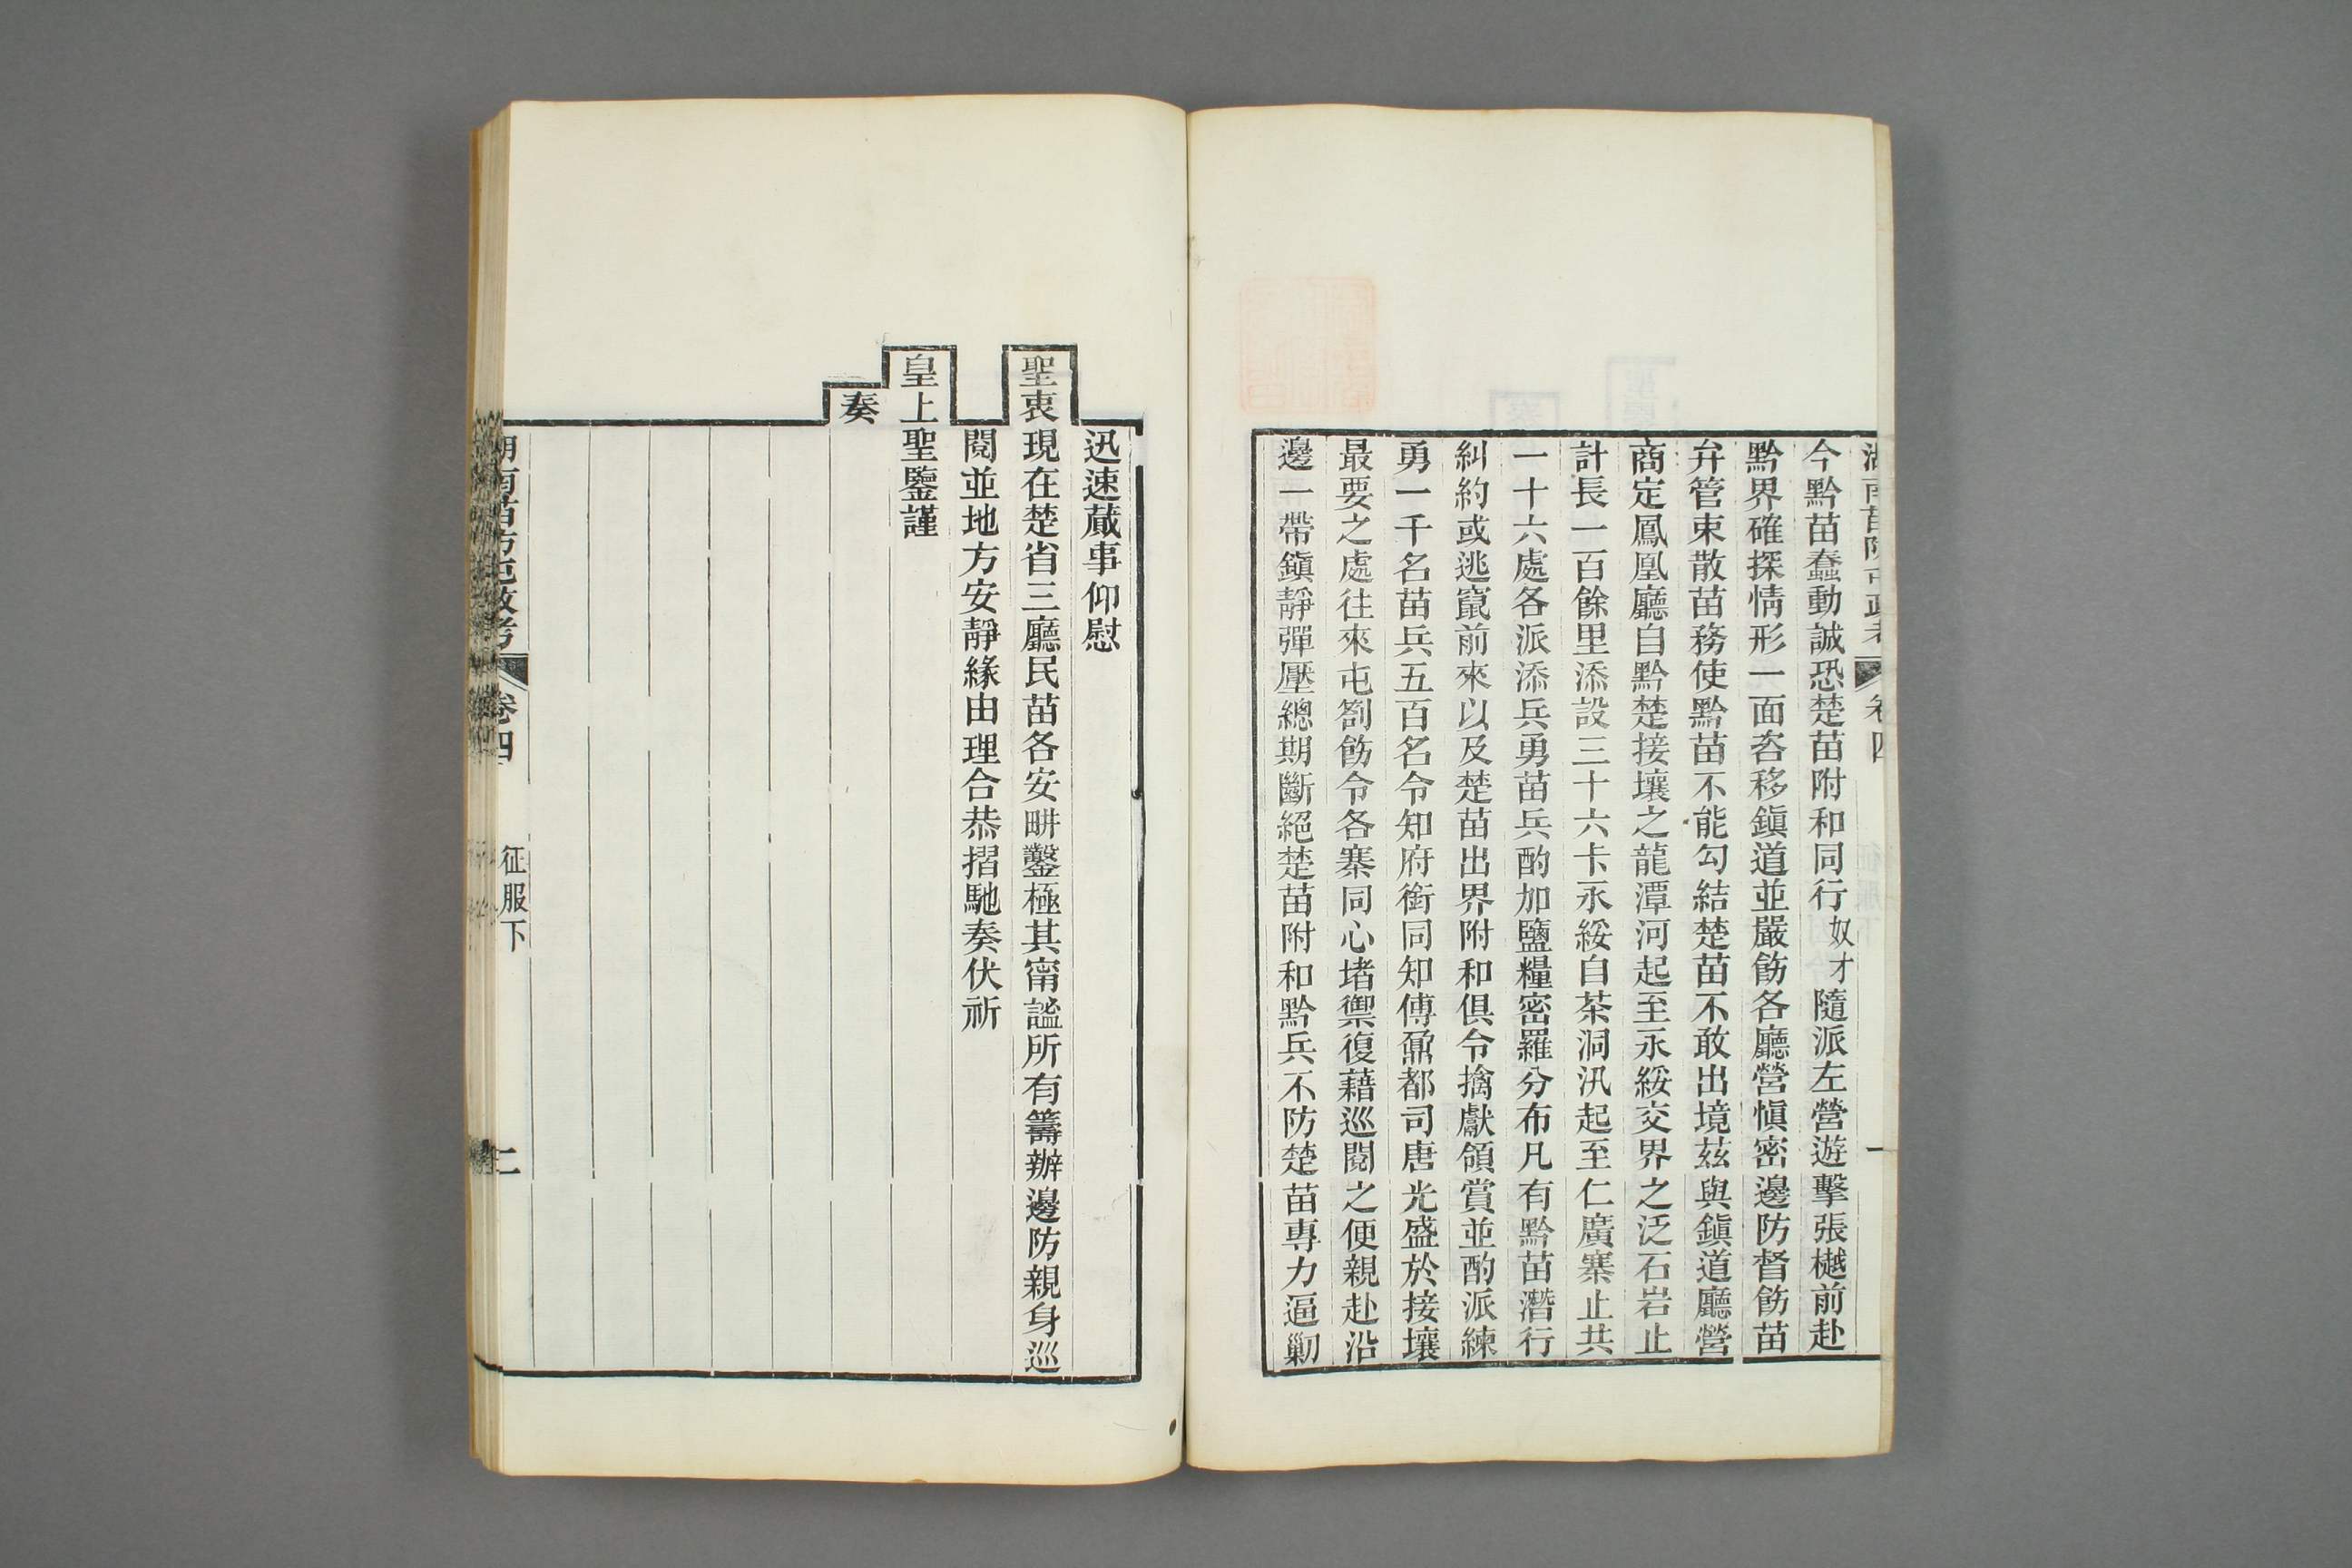 湖南苗防屯政考 卷四 一
今黔苗蠢動誠恐楚苗附和同行奴才隨派左營遊擊張樾前赴
黔界確探情形一面咨移鎭道並嚴飭各廳營愼密邊防督飭苗
弁管束散苗務使黔苗不能勾結楚苗不敢出境茲與鎭道廳營
商定鳳凰廳自黔楚接壤之龍潭河起至永綏交界之泛石岩止
計長一百餘里添設三十六卡永綏自茶洞汛起至仁廣寨止共
一十六處各派添兵勇苗兵酌加鹽糧密羅分布凡有黔苗潛行
糾約或逃竄前來以及楚苗出界附和俱令擒獻領賞並酌派練
勇一千名苗兵五百名令知府銜同知傅鼐都司唐光盛於接壤
最要之處往來屯劄飭令各寨同心堵禦復藉巡閱之便親赴沿
邊一帶鎭靜彈壓總期斷絕楚苗附和黔兵不防楚苗專力逼勦
迅速蕆事仰慰
聖衷現在楚省三廳民苗各安畊鑿極其甯謐所有籌辦邊防親身巡
閱並地方安靜緣由理合恭摺馳奏伏祈
皇上聖鑒謹
奏
湖南苗防屯政考 卷四 征服下 二